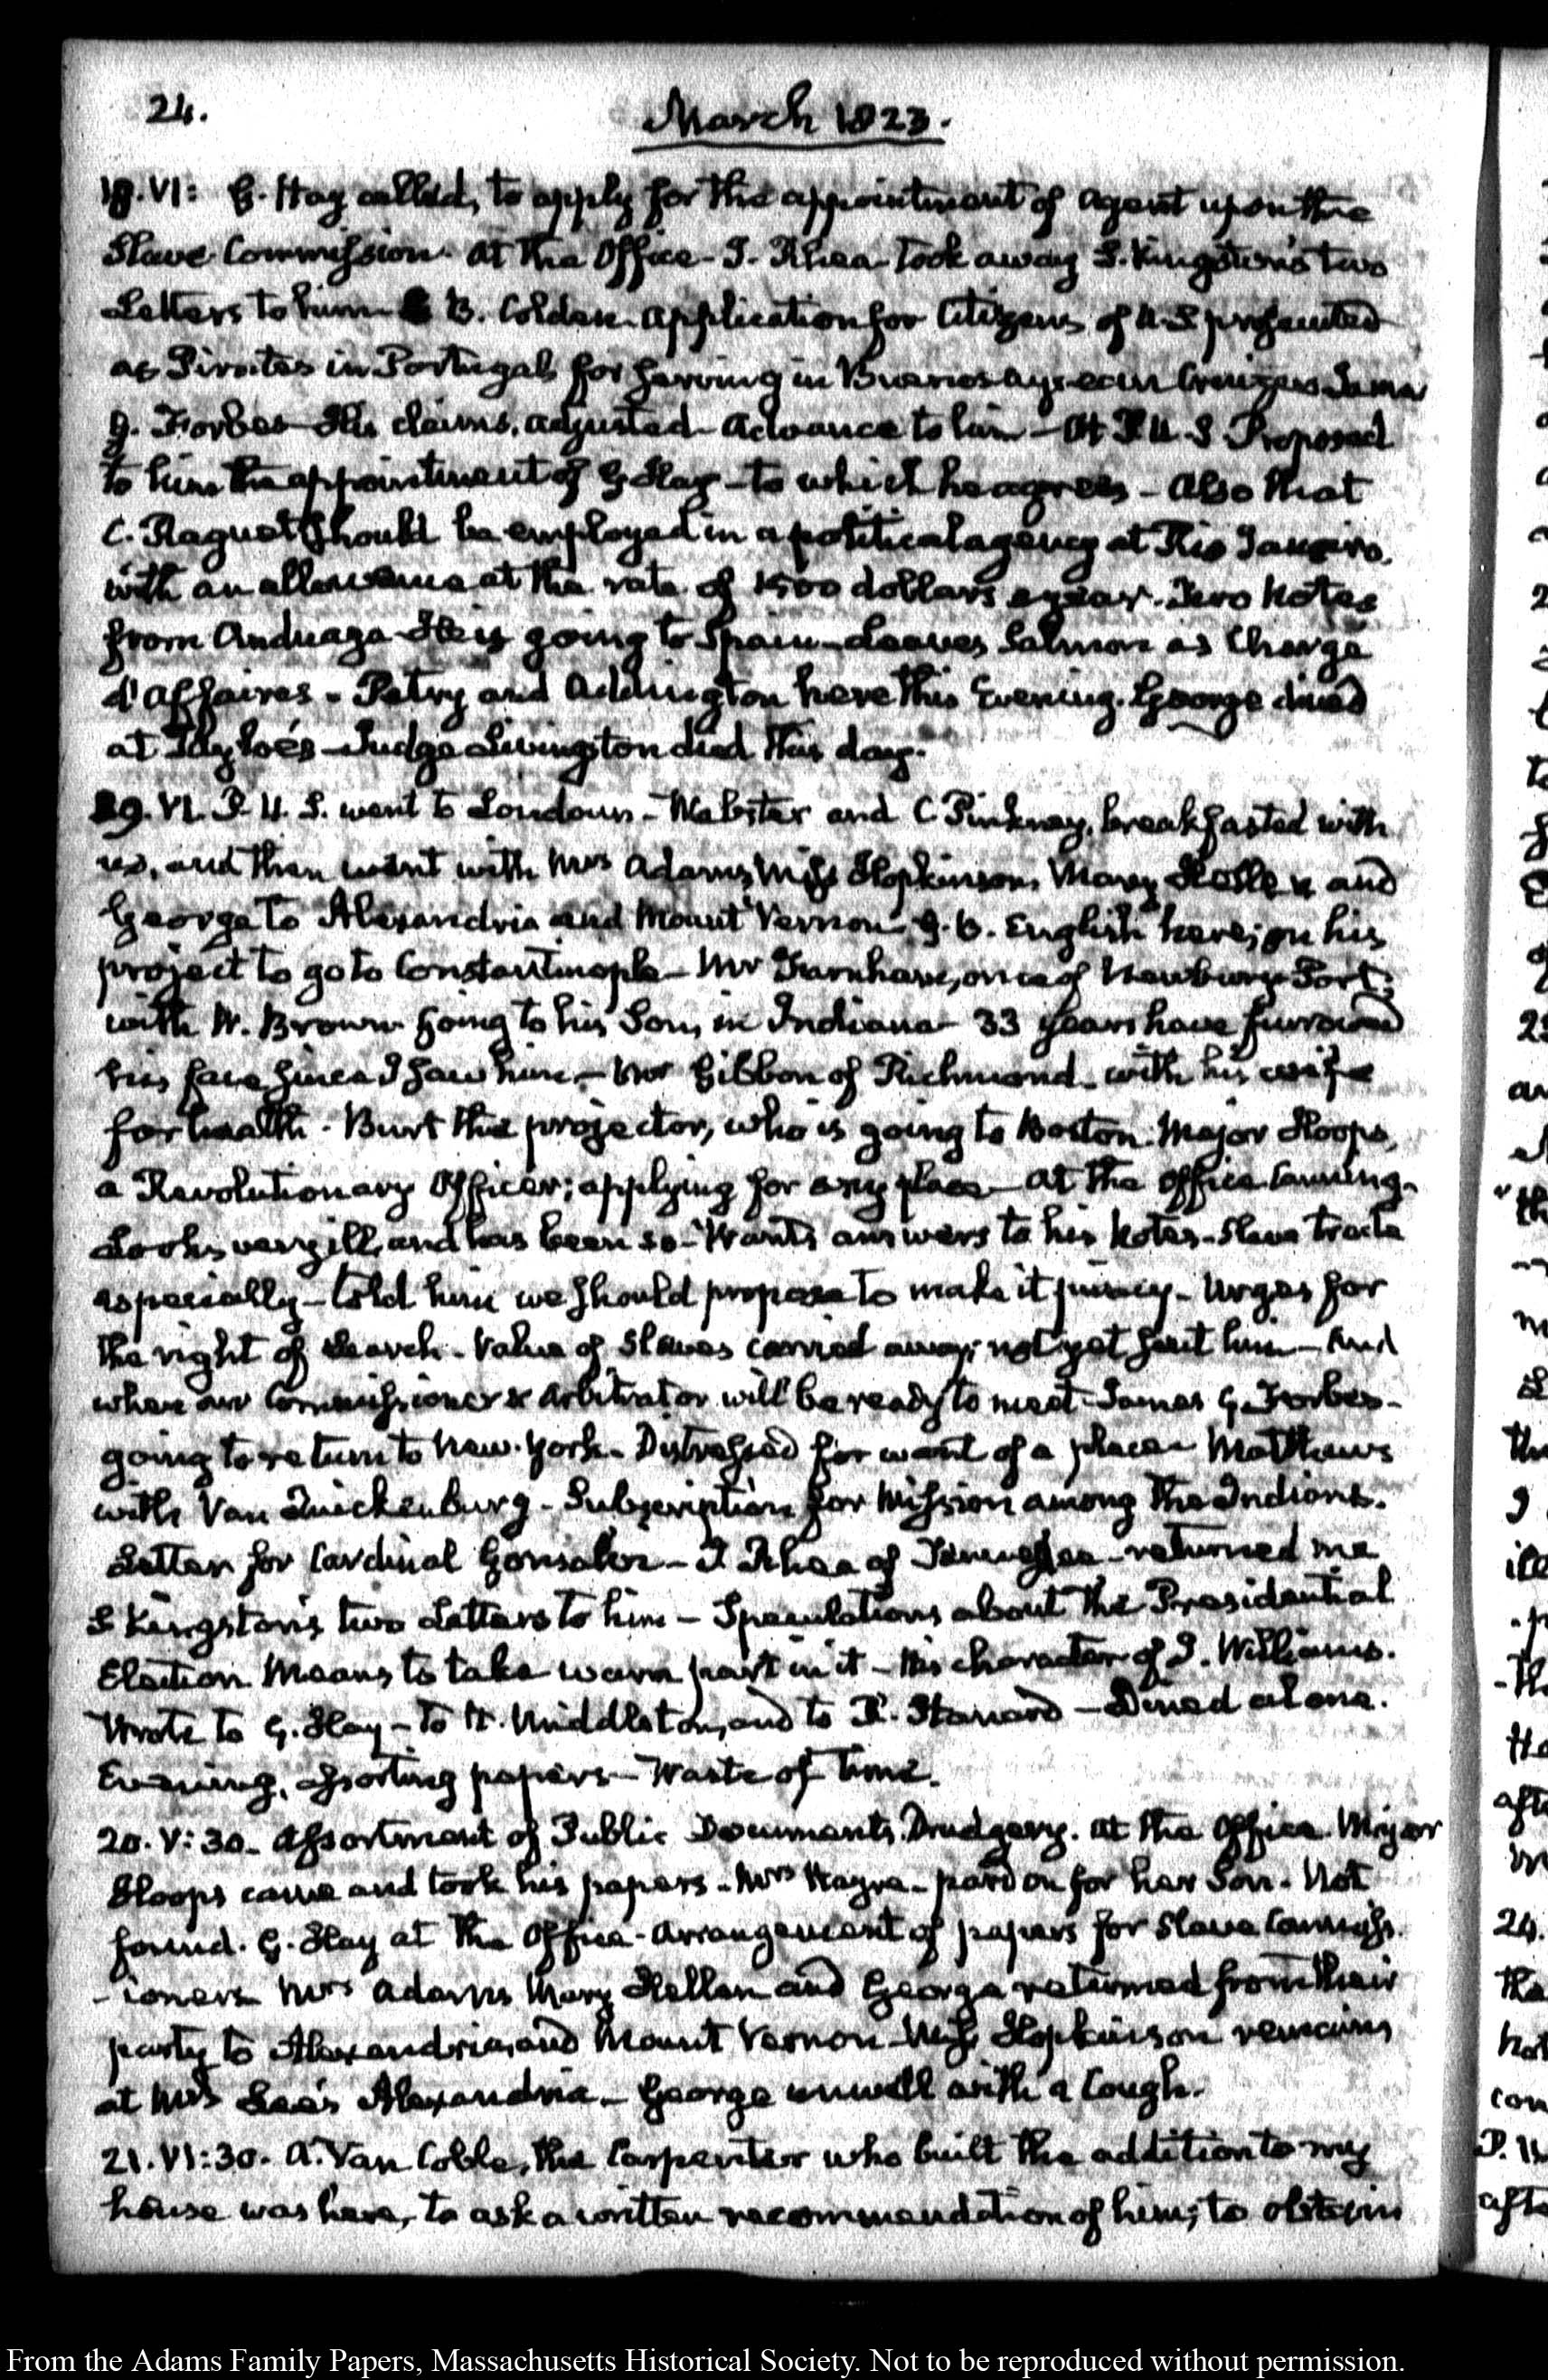 24.
March 1823.
18. VI: G. Hay called, to apply for the appointment of Agent upon the
Slave Commission. At the Office. J. Rhea took away S. Kingston's two
Letters to him B. Colden. Application for Citizens of U.S prosecuted
as Pirates in Portugal, for serving in Buenos ayrean Cruizers James
G. Forbes His claims, adjusted. Advance to him — At P. U S Proposed
to him the appointment of G Hay — to which he agrees — Also that
C. Raguet should be employed in a political agency at Rio Janeiro,
with an allowance at the rate of 1500 dollars a year. Two Notes
from Anduaga He is going to Spain — Leaves Salmon as Chargé
d'Affaires. Petry and Addington here this Evening. George dined
at Tayloe's — Judge Livingston died this day.
19. VI. P. U. S. went to Loudoun — Webster and C Pinkney, breakfasted with
us, and then went with Mrs Adams, Miss Hopkinson, Mary Hellen and
George to Alexandria and Mount Vernon. G. B. English here; on his
project to go to Constantinople — Mr Farnham, once of Newbury-Port;
with W. Brown. going to his Son, in Indiana — 33 years have furrowed
his face since I saw him. — Mr Gibbon of Richmond. with his wife
for health. Burt the projector, who is going to Boston. Major Hoops,
a Revolutionary Officer; applying for any place — At the Office Canning.
Looks very ill, and has been so — Wants answers to his Notes — Slave trade
especially — told him we should propose to make it piracy — Urges for
the right of Search. Value of Slaves carried away; not yet sent him — And
when our Commissioner & Arbitrator will be ready to meet James G. Forbes —
going to return to New-York. Distressed for want of a place — Matthews
with Van Quickenburg. Subscription for Mission among the Indians.
Letter for Cardinal Gonsalvi — J Rhea of Tennessee — returned me
S Kingston's two Letters to him — Speculations about the Presidential
Election. Means to take warm part in it — His character of J. Williams.
Wrote to G. Hay — to H. Middleton, and to R. Stanard — Dined alone.
Evening, assorting papers — Waste of Time.
20. V: 30. Assortment of Public Documents. Drudgery. At the Office. Major
Hoops came and took his papers — Mrs — pardon for her Son. Not
found. G. Hay at the Office. Arrangement of papers for Slave Commiss.
-ioners. Mrs Adams Mary Hellen and George returned from their
party to Alexandria, and Mount Vernon. Miss Hopkinson remains
at Mrs Lee's Alexandria. — George unwell with a Cough.
21. VI: 30. A. Van Coble, the Carpenter who built the addition to my
house was here, to ask a written recommendation of him; to obtain
From the Adams Family Papers, Massachusetts Historical Society. Not to be reproduced without permission.